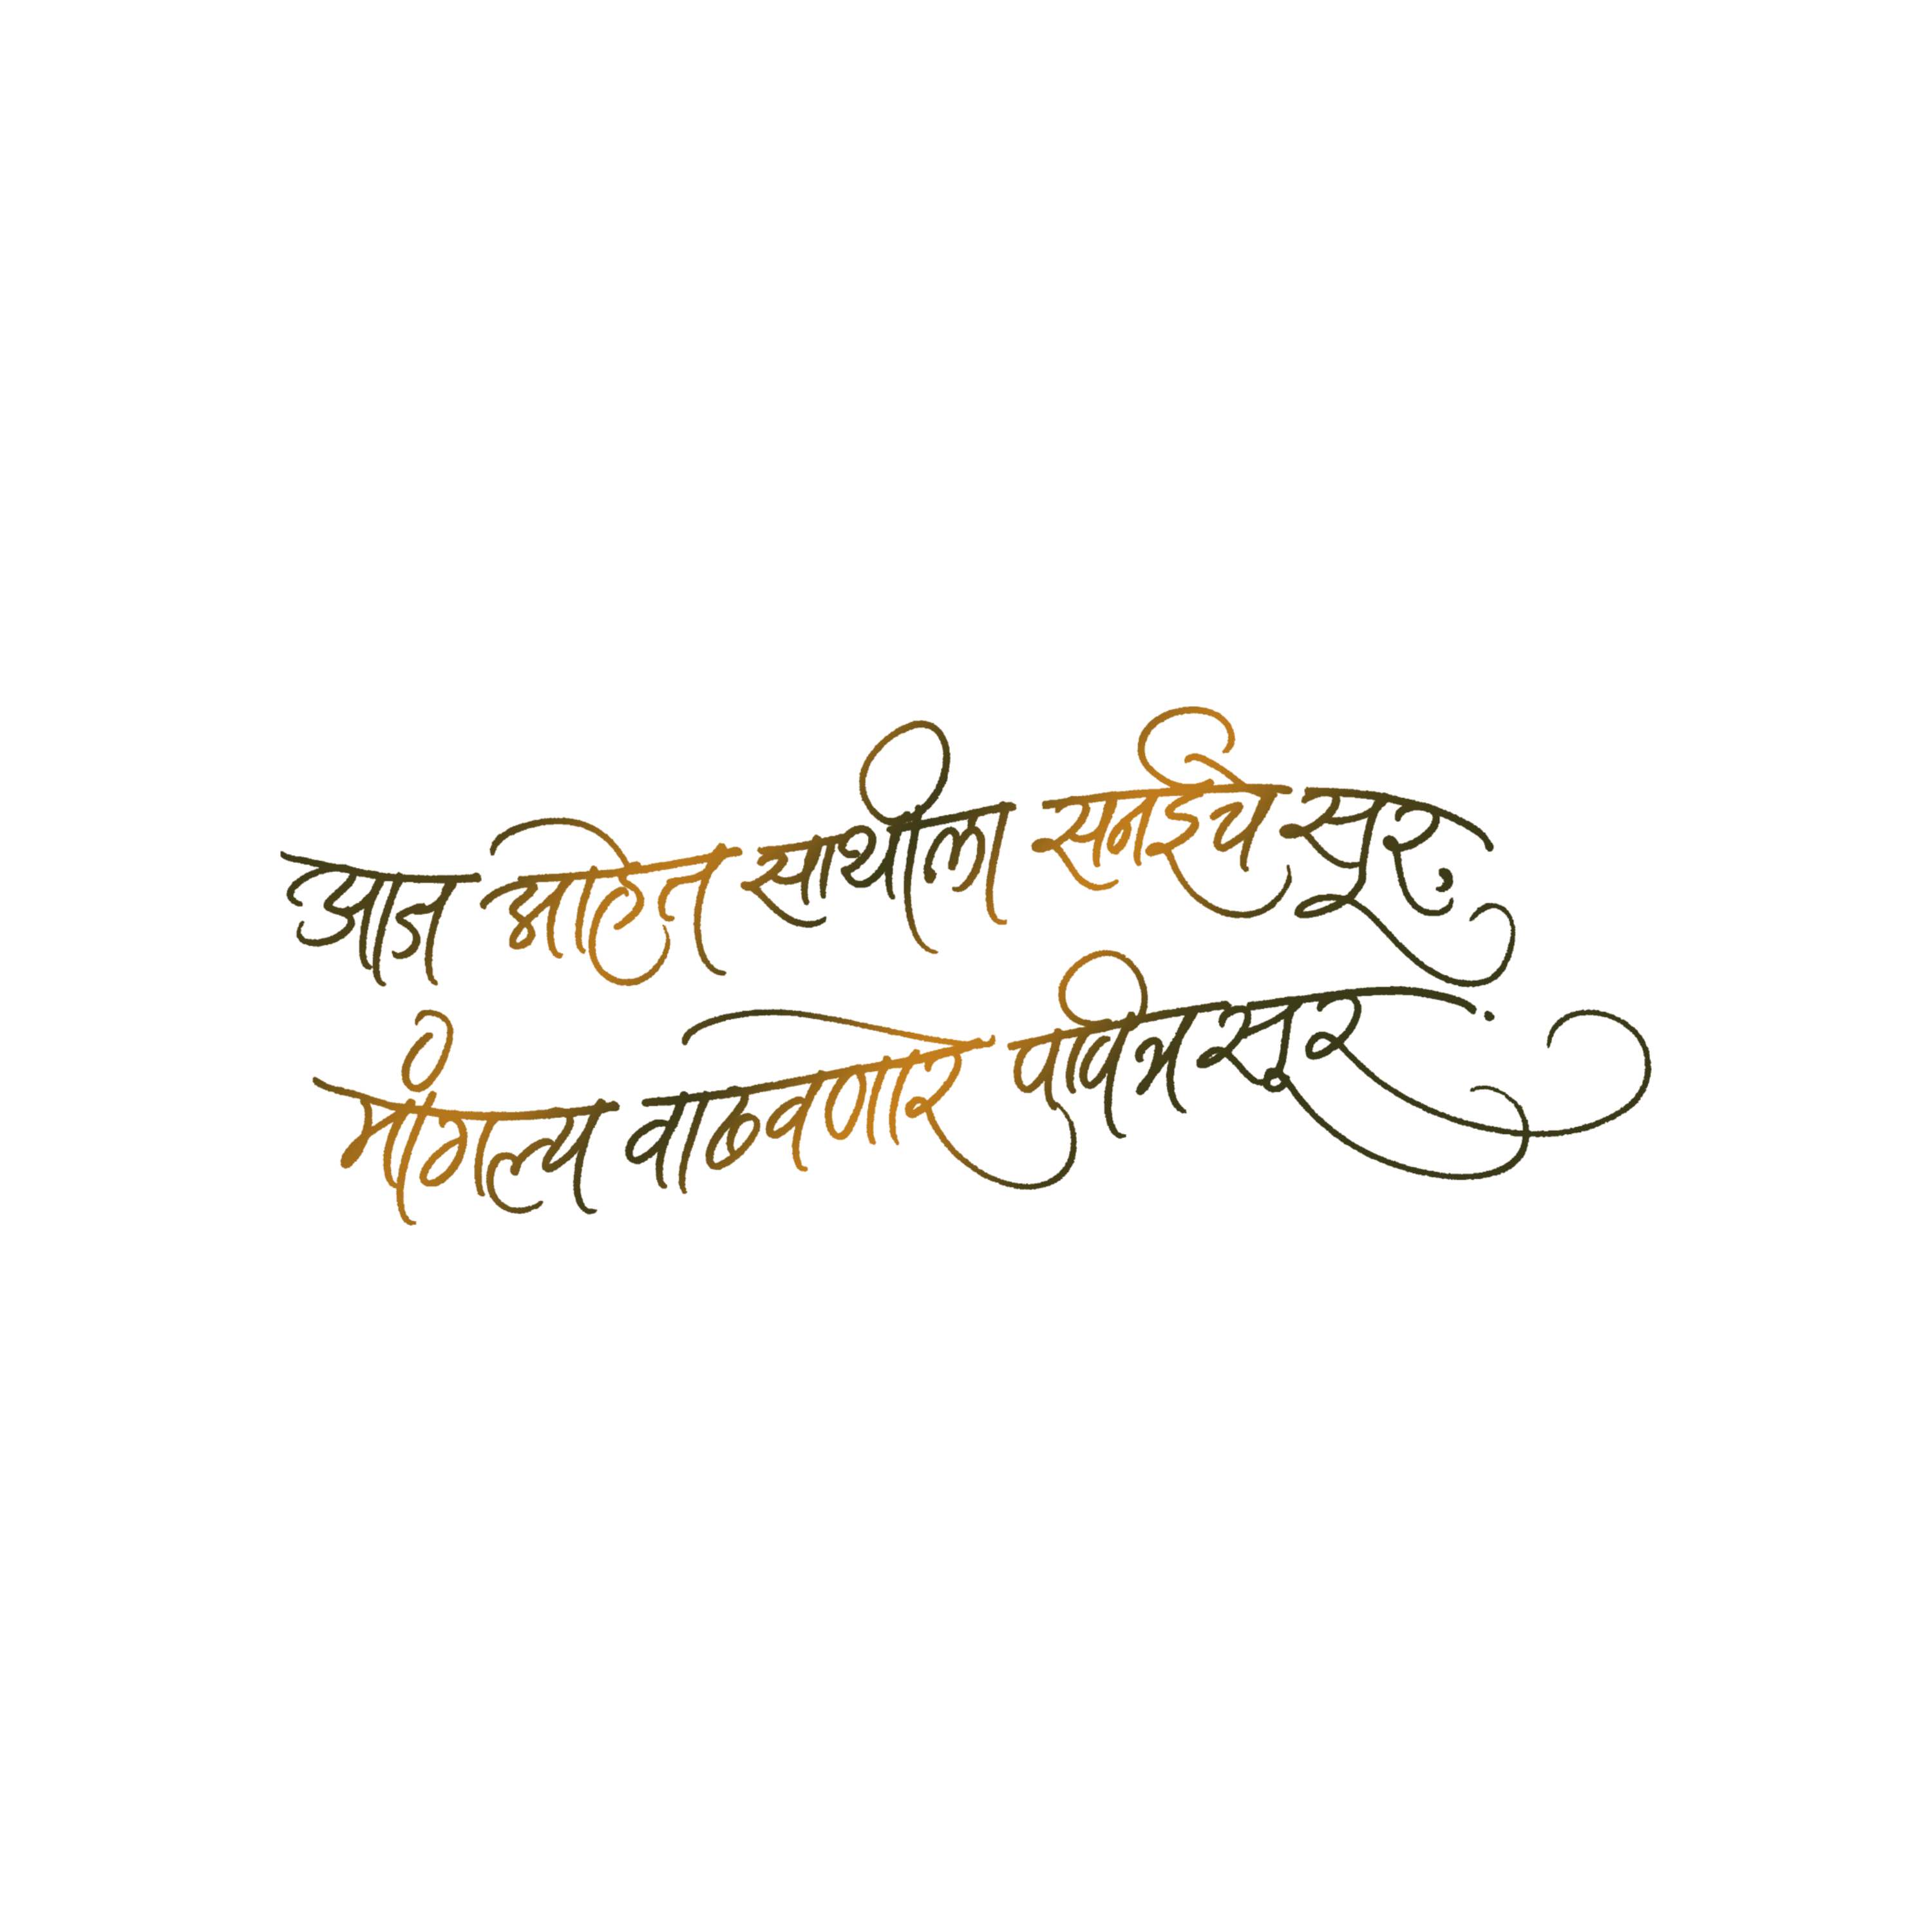 आज आहेत साथीला सनईचे सूर,
मांगल्य वाढवणारे पवित्र सूर